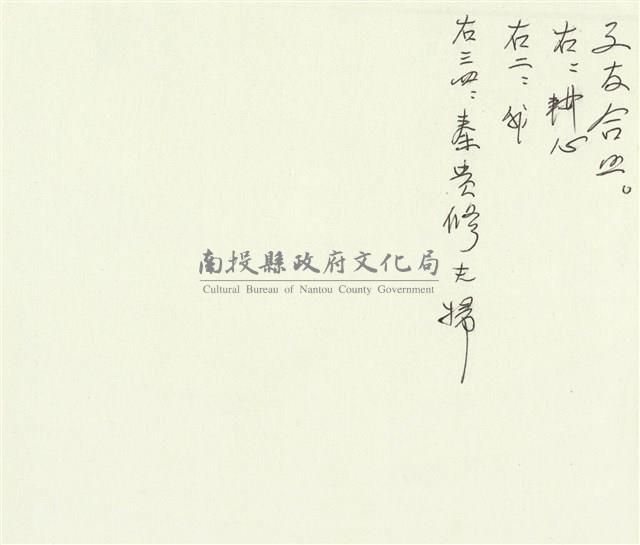 文友合照。
右：耕心
右二：我
右三四：秦貴修夫婦
南投縣政府文化局
Cultural Bureau of Nantou County Government